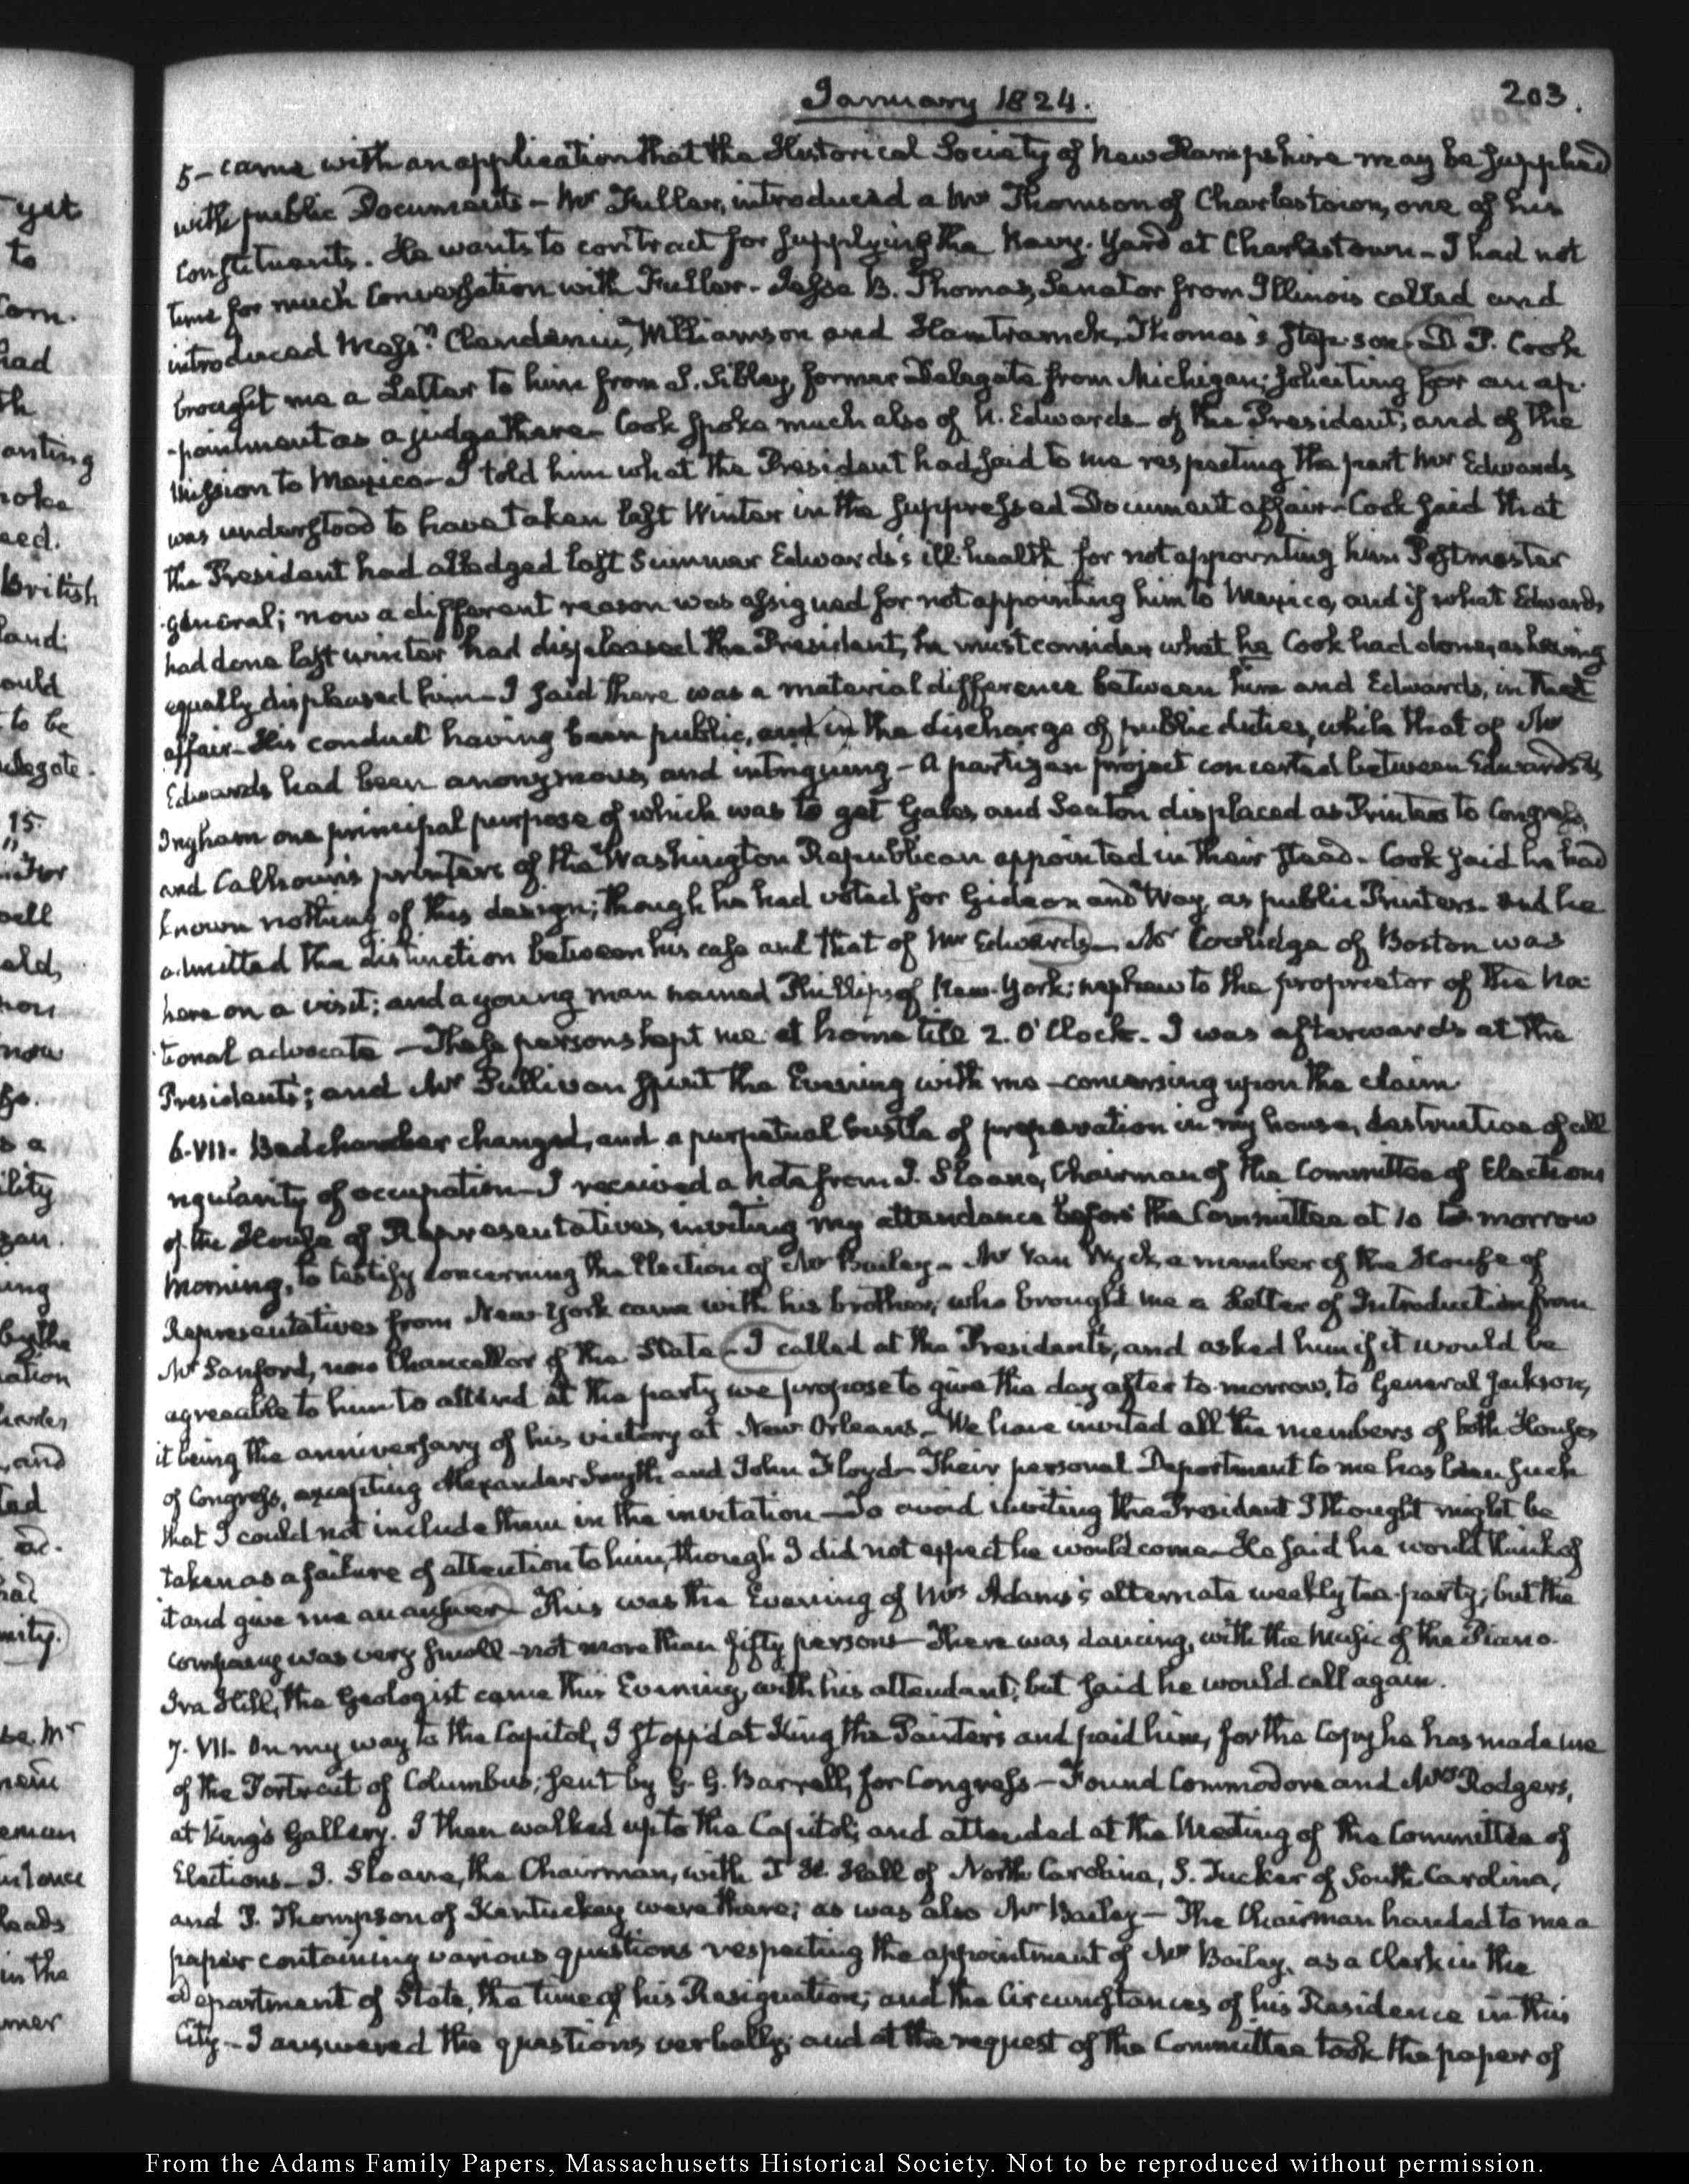 January 1824.
203.
5 - came with an application that the Historical Society of New Hampshire may be supplied
with public Documents - Mr Fuller, introduced a Mr Thomson of Charlestown, one of his
Constituents. He wants to contract for supplying the Navy-Yard at Charlestown - I had not
time for much Conversation with Fuller - Jesse B. Thomas, Senator from Illinois called and
introduced Messrs Clendenin, Williamson and Hamtramck, Thomas's step-son. D. P. Cook
brought me a Letter to him from S. Sibley, former Delegate from Michigan; soliciting for an ap-
-pointment as a judge there - Cook spoke much also of N. Edwards - of the President, and of the
Mission to Mexico - I told him what the President had said to me respecting the part Mr Edwards
was understood to have taken last Winter in the suppressed Document affair - Cook said that
the President had alledged last Summer Edwards's ill-health for not appointing him Postmaster
general; now a different reason was assigned for not appointing him to Mexico, and if what Edwards
had done last winter had displeased the President, he must consider what he Cook had done, as having
equally displeased him - I said there was a material difference between him and Edwards, in that
affair - His conduct having been public, and in the discharge of public duties, while that of Mr
Edwards had been anonymous, and intriguing - A partizan project concerted between Edwards &
Ingham one principal purpose of which was to get Gales and Seaton displaced as Printers to Congress,
and Calhoun's printers of the Washington Republican appointed in their stead - Cook said he had
known nothing of this design; though he had voted for Gideon and Way, as public Printers - and he
admitted the distinction between his case and that of Mr Edwards - Mr Coolidge of Boston was
here on a visit; and a young man named Phillips of New-York; nephew to the proprietor of the Na-
tional advocate - These persons kept me at home till 2. O'Clock. I was afterwards at the
Presidents; and Mr Sullivan spent the Evening with me - conversing upon the claim
6. VII. Bedchamber changed, and a perpetual bustle of preparation in my house, destructive of all
regularity of occupation - I received a Note from J. Sloane, Chairman of the Committee of Elections
of the House of Representatives, inviting my attendance before the Committee at 10 to-morrow
Morning, to testify concerning the Election of Mr Bailey - Mr Van Wyck, a member of the House of
Representatives from New-York came with his brother, who brought me a Letter of Introduction from
Mr Sanford, now Chancellor of the State - I called at the Presidents, and asked him if it would be
agreeable to him to attend at the party we propose to give the day after to-morrow, to General Jackson,
it being the anniversary of his victory at New Orleans - We have invited all the members of both Houses
of Congress, excepting Alexander Smyth and John Floyd - Their personal Deportment to me has been such
that I could not include them in the invitation - To avoid inviting the President I thought might be
taken as a failure of attention to him, though I did not expect he would come - He said he would think of
it and give me an answer - This was the Evening of Mrs Adams's alternate weekly tea-party; but the
company was very small - not more than fifty persons - There was dancing, with the Music of the Piano.
Ira Hill, the Geologist came this Evening, with his attendant; but said he would call again.
7. VII. On my way to the Capitol, I stopp'd at King the Painter's and paid him, for the Copy he has made me
of the Portrait of Columbus, sent by G. G. Barrell, for Congress - Found Commodore and Mrs Rodgers,
at King's Gallery. I then walked up to the Capitol; and attended at the Meeting of the Committee of
Elections - J. Sloane, the Chairman, with T H. Hall of North Carolina, S. Tucker of South Carolina,
and P. Thompson of Kentuckey were there; as was also Mr Bailey - The Chairman handed to me a
paper containing various questions respecting the appointment of Mr Bailey, as a Clerk in the
Department of State, the time of his Resignation; and the Circumstances of his Residence in this
City - I answered the questions verbally; and at the request of the Committee took the paper of
From the Adams Family Papers, Massachusetts Historical Society. Not to be reproduced without permission.